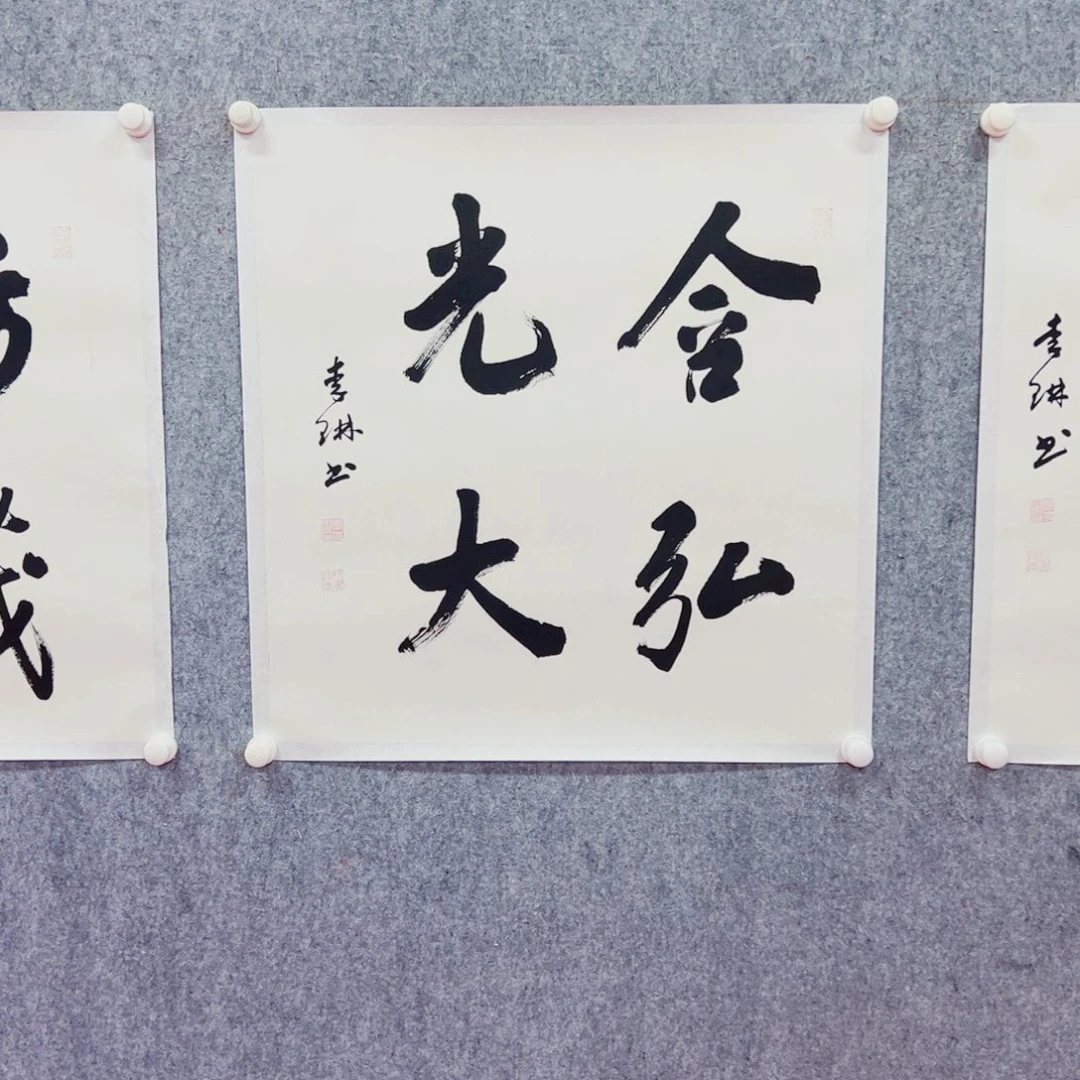 含弘
光大
李琳书
李琳书